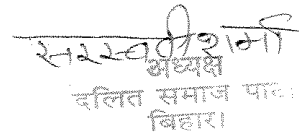 सरस्वती शर्मा
अध्यक्ष
दलित समाज
बिहार।